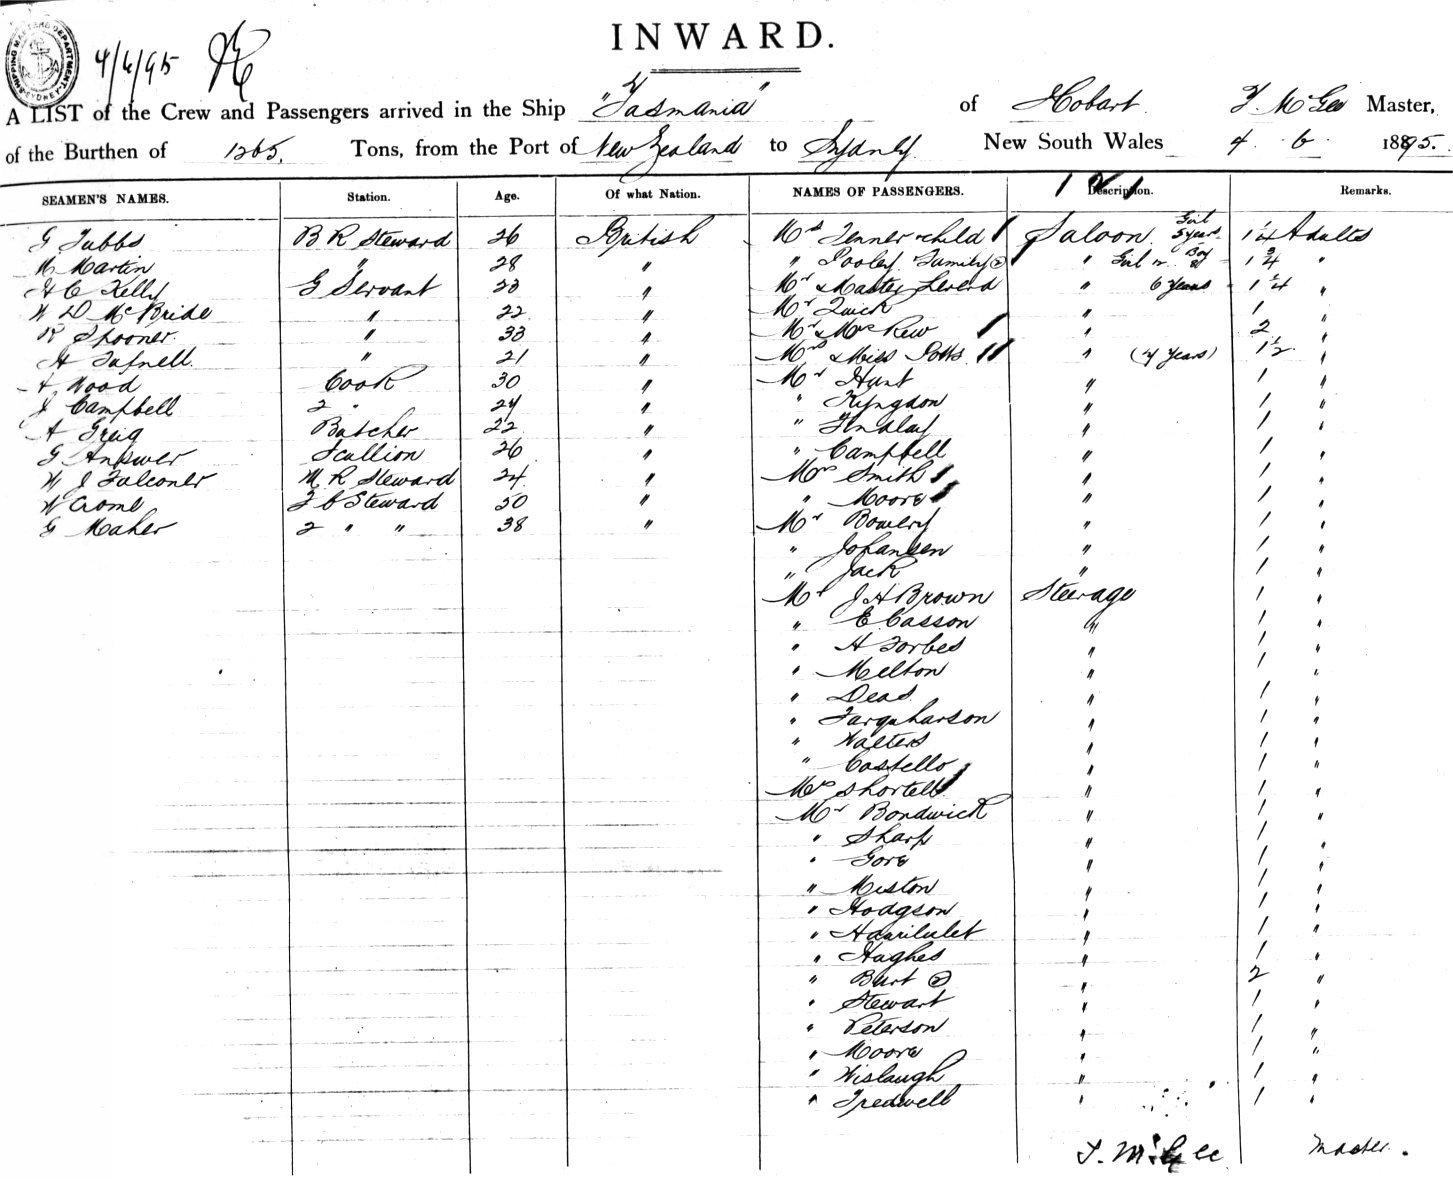 SHIPPING MASTERS DEPARTMENT SYDNEY
4/6/95
INWARD.
A LIST of the Crew and Passengers arrived in the Ship "Tasmania" of Hobart T McGee Master,
of the Burthen of 1265. Tons, from the Port of New Zealand to Sydney New South Wales 4. 6. 1895.
SEAMEN'S NAMES. Station. Age. Of what Nation. NAMES OF PASSENGERS. Description. Remarks.
G Tubbs B R Steward 26 British
M Martin " 28 "
H C Kelly G Servant 23 "
W D McBride " 22 "
R Spooner " 33 "
H Tufnell " 21 "
A Wood Cook 30 "
J Campbell 2 " 24 "
A Greig Butcher 22 "
G Answer Scullion 26 "
W J Falconer M R Steward 24 "
W Crome F C Steward 50 "
G Maher 2 " " 38 "
Mrs Jenner & child Saloon Girl 5 years 1 1/4 Adults
" Pooley Family " Girl Boy 1 3/4 "
Mr & Master " 6 years 1 1/4 "
Mr Quick " 1 "
Mr & Mrs Rew " 2 "
Mrs & Miss Potts " (7 years) 1 1/2 "
Mr Hunt " 1 "
" Kyngdon " 1 "
" Findlay " 1 "
" Campbell " 1 "
Mrs Smith " 1 "
" Moore " 1 "
Mr Bowery " 1 "
" Johansen " 1 "
" Jack " 1 "
Mr J H Brown Steerage 1 "
" E Casson " 1 "
" H Forbes " 1 "
" Melton " 1 "
" Dead " 1 "
" Farquharson " 1 "
" Walters " 1 "
" Costello " 1 "
Mrs Shortell " 1 "
Mr Bondwick " 1 "
" Sharp " 1 "
" Gore " 1 "
" Miston " 1 "
" Hodgson " 1 "
" " 1 "
" Hughes " 1 "
" Burt (2) " 2 "
" Stewart " 1 "
" Peterson " 1 "
" Moore " 1 "
" Wislaugh " 1 "
" Tredwell " 1 "
T. McGee Master.